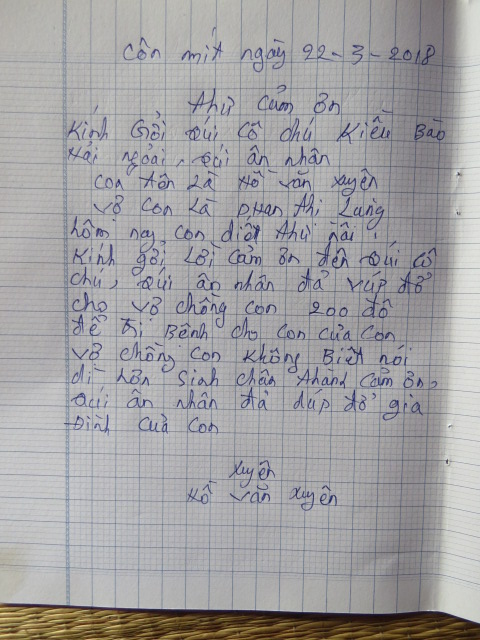 Côn mít ngày 22-3-2018
Thư Cảm Ơn
Kính Gởi Quí Cô chú Kiều Bào
Hải ngoài, Quí ân nhân
Con tên Là Hồ Văn Xuyên
Vợ Con Là Phan Thị Lang
hôm nay Con diết Thư nầi
Kính gởi Lời Cảm Ơn đến Quí Cô
chú, Quí ân nhân đả vúp đở
cho vợ chồng con 200 đô
để Trị Bênh cho Con của Con
vợ chồng Con không Biết nói
dì hơn Sinh chân thành Cảm Ơn,
Quí ân nhân đả dúp đở gia
Đình Của Con
Xuyên
Hồ Văn Xuyên